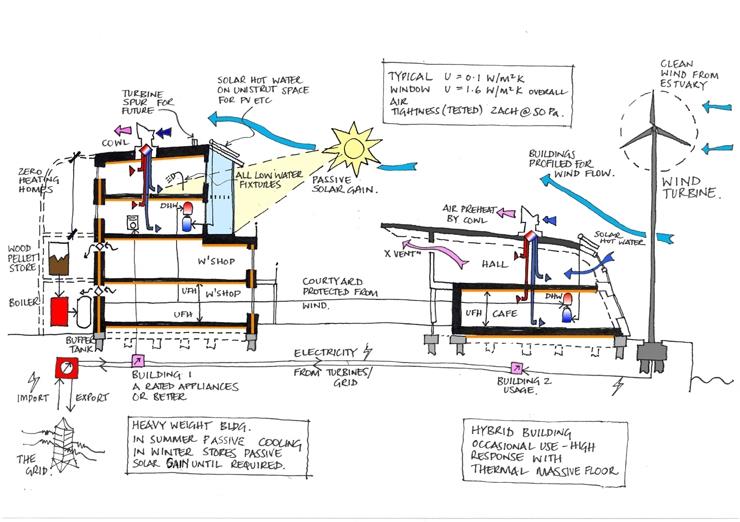 TYPICAL U = 0.1 W/m²K
WINDOW U = 1.6 W/m²K OVERALL
AIR
TIGHTNESS (TESTED) 2ACH @ 50 Pa.
CLEAN
WIND FROM
ESTUARY
SOLAR HOT WATER
ON UNISTRUT SPACE
FOR PV ETC
TURBINE
SPUR FOR
FUTURE
COWL
ZERO
HEATING
HOMES
ALL LOW WATER
FIXTURES
PASSIVE
SOLAR GAIN.
BUILDINGS
PROFILED FOR
WIND FLOW.
WIND
TURBINE.
DHW
AIR PREHEAT
BY COWL
SOLAR
HOT WATER
X VENTN
HALL
WOOD
PELLET
STORE
W'SHOP
BOILER
UFH
W'SHOP
UFH
COURTYARD
PROTECTED FROM
WIND.
DHW
UFH
CAFE
BUFFER
TANK
ELECTRICITY
FROM TURBINES/
GRID
IMPORT
EXPORT
BUILDING 1
A RATED APPLIANCES
OR BETTER
BUILDING 2
USAGE.
THE
GRID
HEAVY WEIGHT BLDG.
IN SUMMER PASSIVE COOLING
IN WINTER STORES PASSIVE
SOLAR GAIN UNTIL REQUIRED.
HYBRID BUILDING
OCCASIONAL USE - HIGH
RESPONSE WITH
THERMAL MASSIVE FLOOR